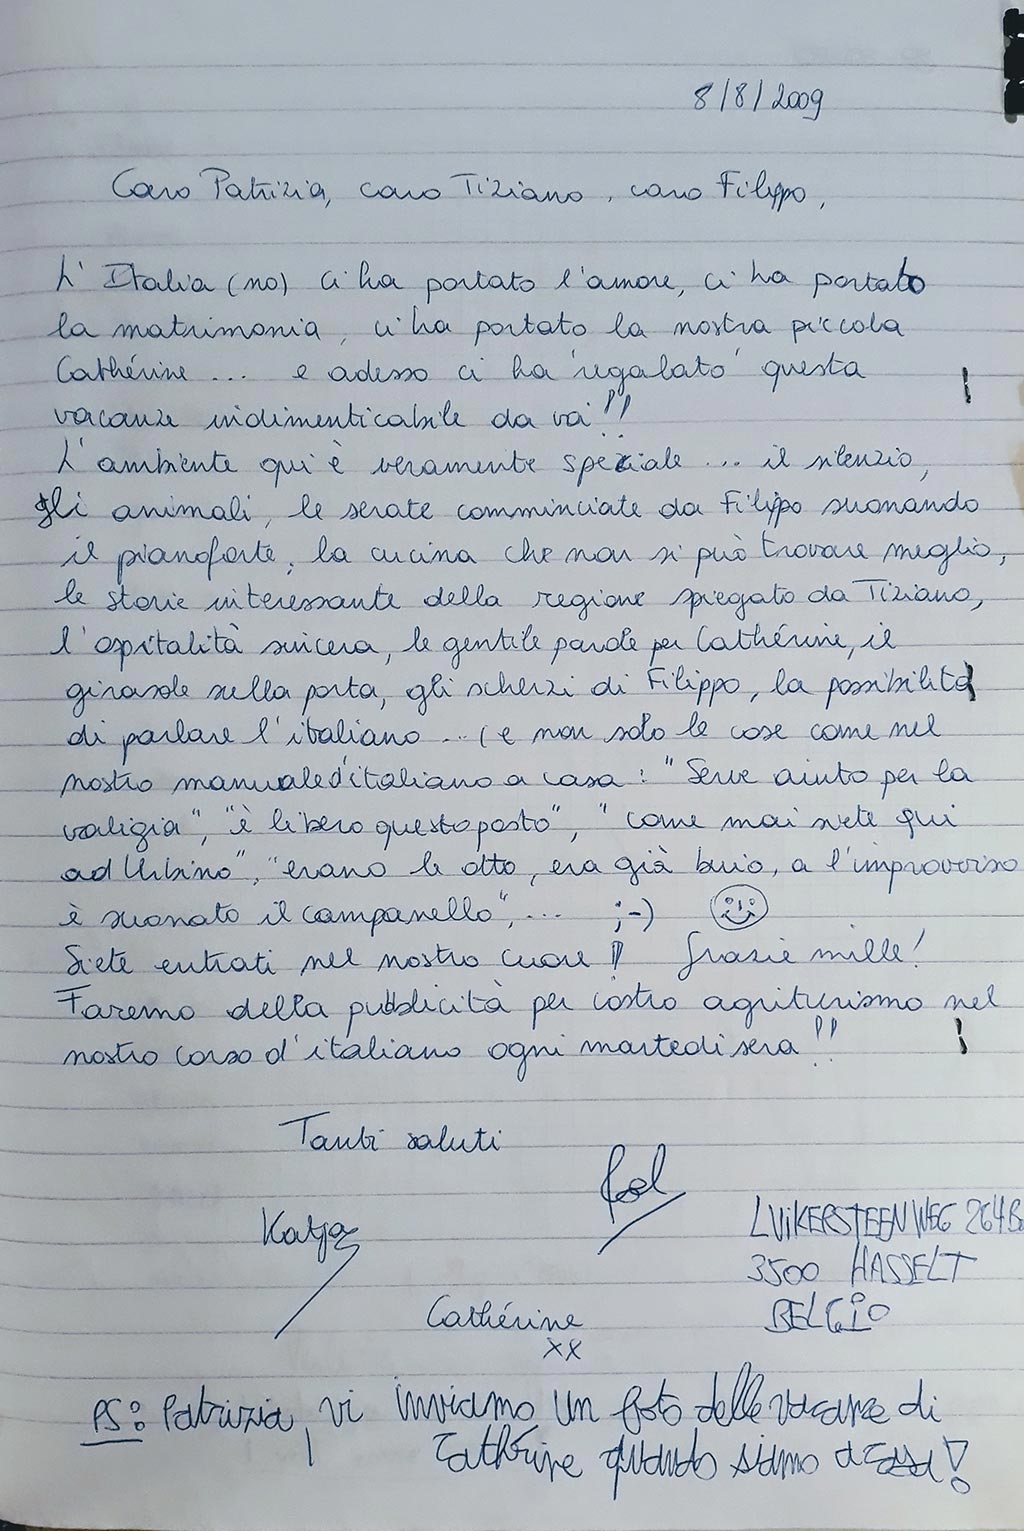 8/8/2009
Caro Patrizia, caro Tiziano, caro Filippo,
L'Italia (no) ci ha portato l'amore, ci ha portato
la matrimonia, ci ha portato la nostra piccola
Cathérine ... e adesso ci ha 'regalato' questa
vacanze indimenticabile da voi!!
L'ambiente qui è veramente speziale ... il silenzio,
gli animali, le serate comminciate da Filippo suonando
il pianoforte, la cucina che non si può trovare meglio,
le storie interessante della regione spiegato da Tiziano,
l'ospitalità sincera, le gentile parole per Cathérine, il
girasole sulla porta, gli scherzi di Filippo, la possibilità
di parlare l'italiano ... (e non solo le cose come nel
nostro manuale d'italiano a casa: "Serve aiuto per la
valigia", "è libero questo posto", "come mai siete qui
ad Urbino", "erano le otto, era già buio, a l'improvviso
è suonato il campanello", ... ;-)
Siete entrati nel nostro cuore! Grazie mille!
Faremo della pubblicità per vostro agriturismo nel
nostro corso d'italiano ogni martedi sera!!
Tanti saluti
Katja
Cathérine
xx
LUIKERSTEENWEG 264B
3500 HASSELT
BELGIO
PS: Patrizia, vi inviamo un foto delle vacanze di
Cathérine quando siamo a casa!